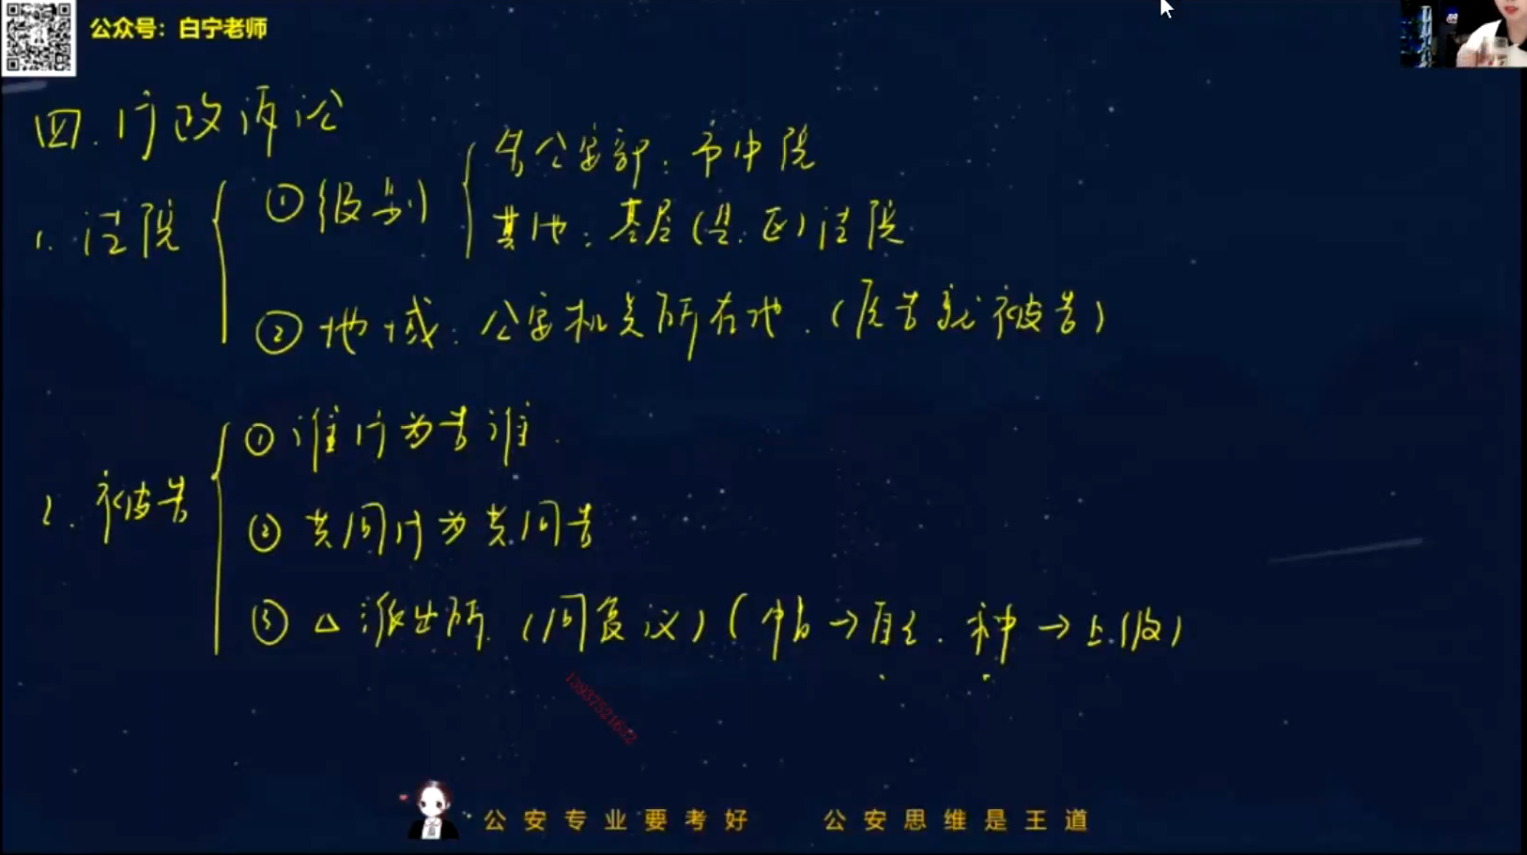 公众号：白宁老师
四.行政诉讼
1.法院
①级别
告公安部：市中院
其他：基层(县.区)法院
②地域：公安机关所在地.(原告就被告)
2.被告
①谁行为告谁.
②共同行为共同告
③△派出所.(同复议)(幅→自己.种→上级)
13937521632
公安专业要考好 公安思维是王道